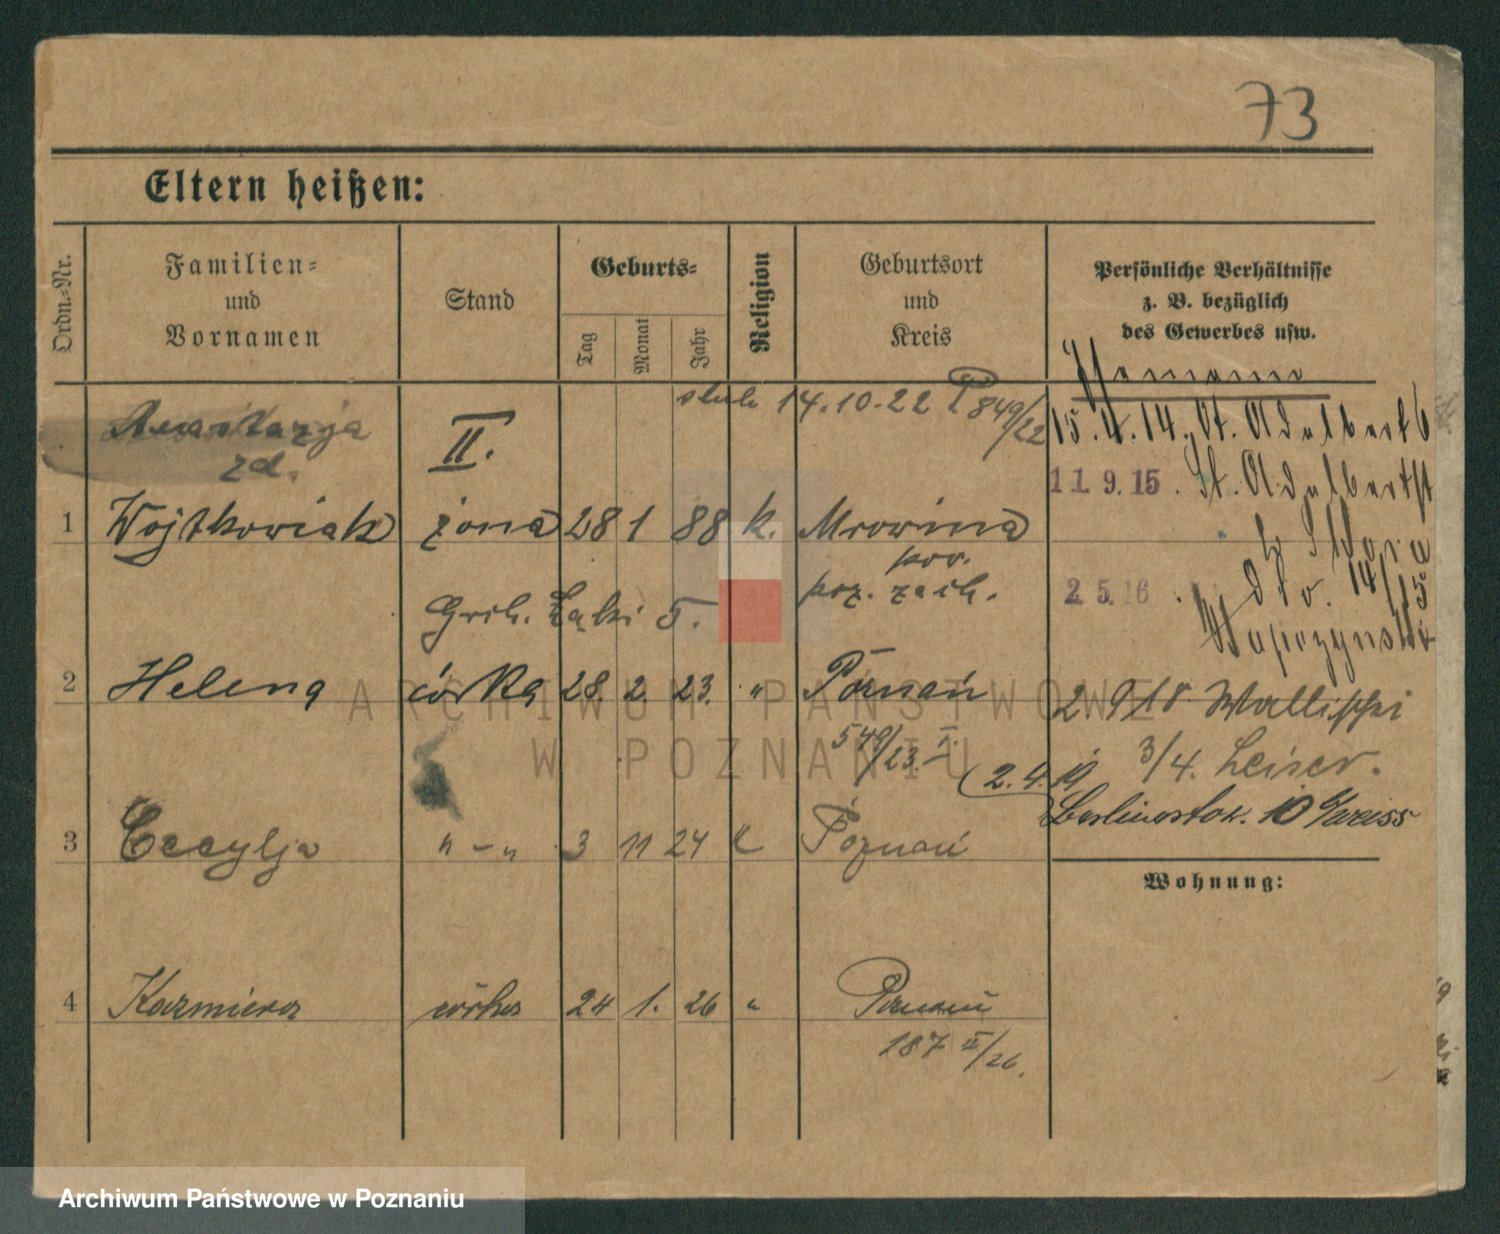 73
Eltern heißen:
Ordn.-Nr.
Familien-
und
Vornamen
Stand
Geburts-
Tag
Monat
Jahr
Religion
Geburtsort
und
Kreis
Persönliche Verhältnisse
z. B. bezüglich
des Gewerbes usw.
ślub 14.10.22 P 849/22
Anastazja
zd.
II.
15.4.14. St. Adalbert 6
11.9.15. St. Adalbertst
1 Wojtkowiak żona 28 1 88 k. Mrowino
pow.
poz. zach.
14/15.
2.5.16.
Grch. Łąki 5.
2 Helena córka 28. 2 23. " Poznań
2 9 18 Wallischei
3/4. Leiser.
549/23. I.
(2.4.19
10
3 Cecylja " – " 3 11 24 k Poznań
Wohnung:
4 Kazmiera córka 24 1. 26 " Poznań
187 II/26.
ARCHIWUM PAŃSTWOWE
W POZNANIU
Archiwum Państwowe w Poznaniu